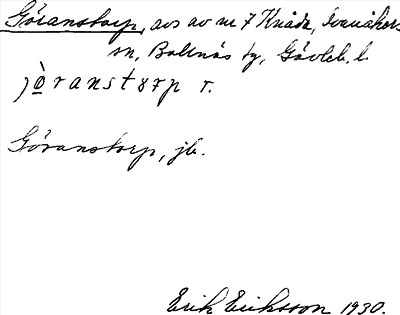 Göranstorp, avs av nr 7 Knåda, Svanåkers
sn, Bollnäs tg, Gävleb. l.
jöranstorp r.
Göranstorp, jb.
Erik Eriksson 1930.